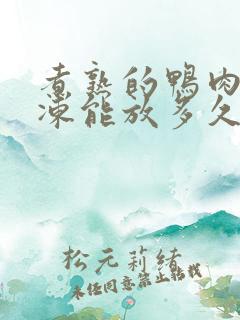 煮熟的鸭肉
冻能放多久
松元莉绪
未经同意禁止转载